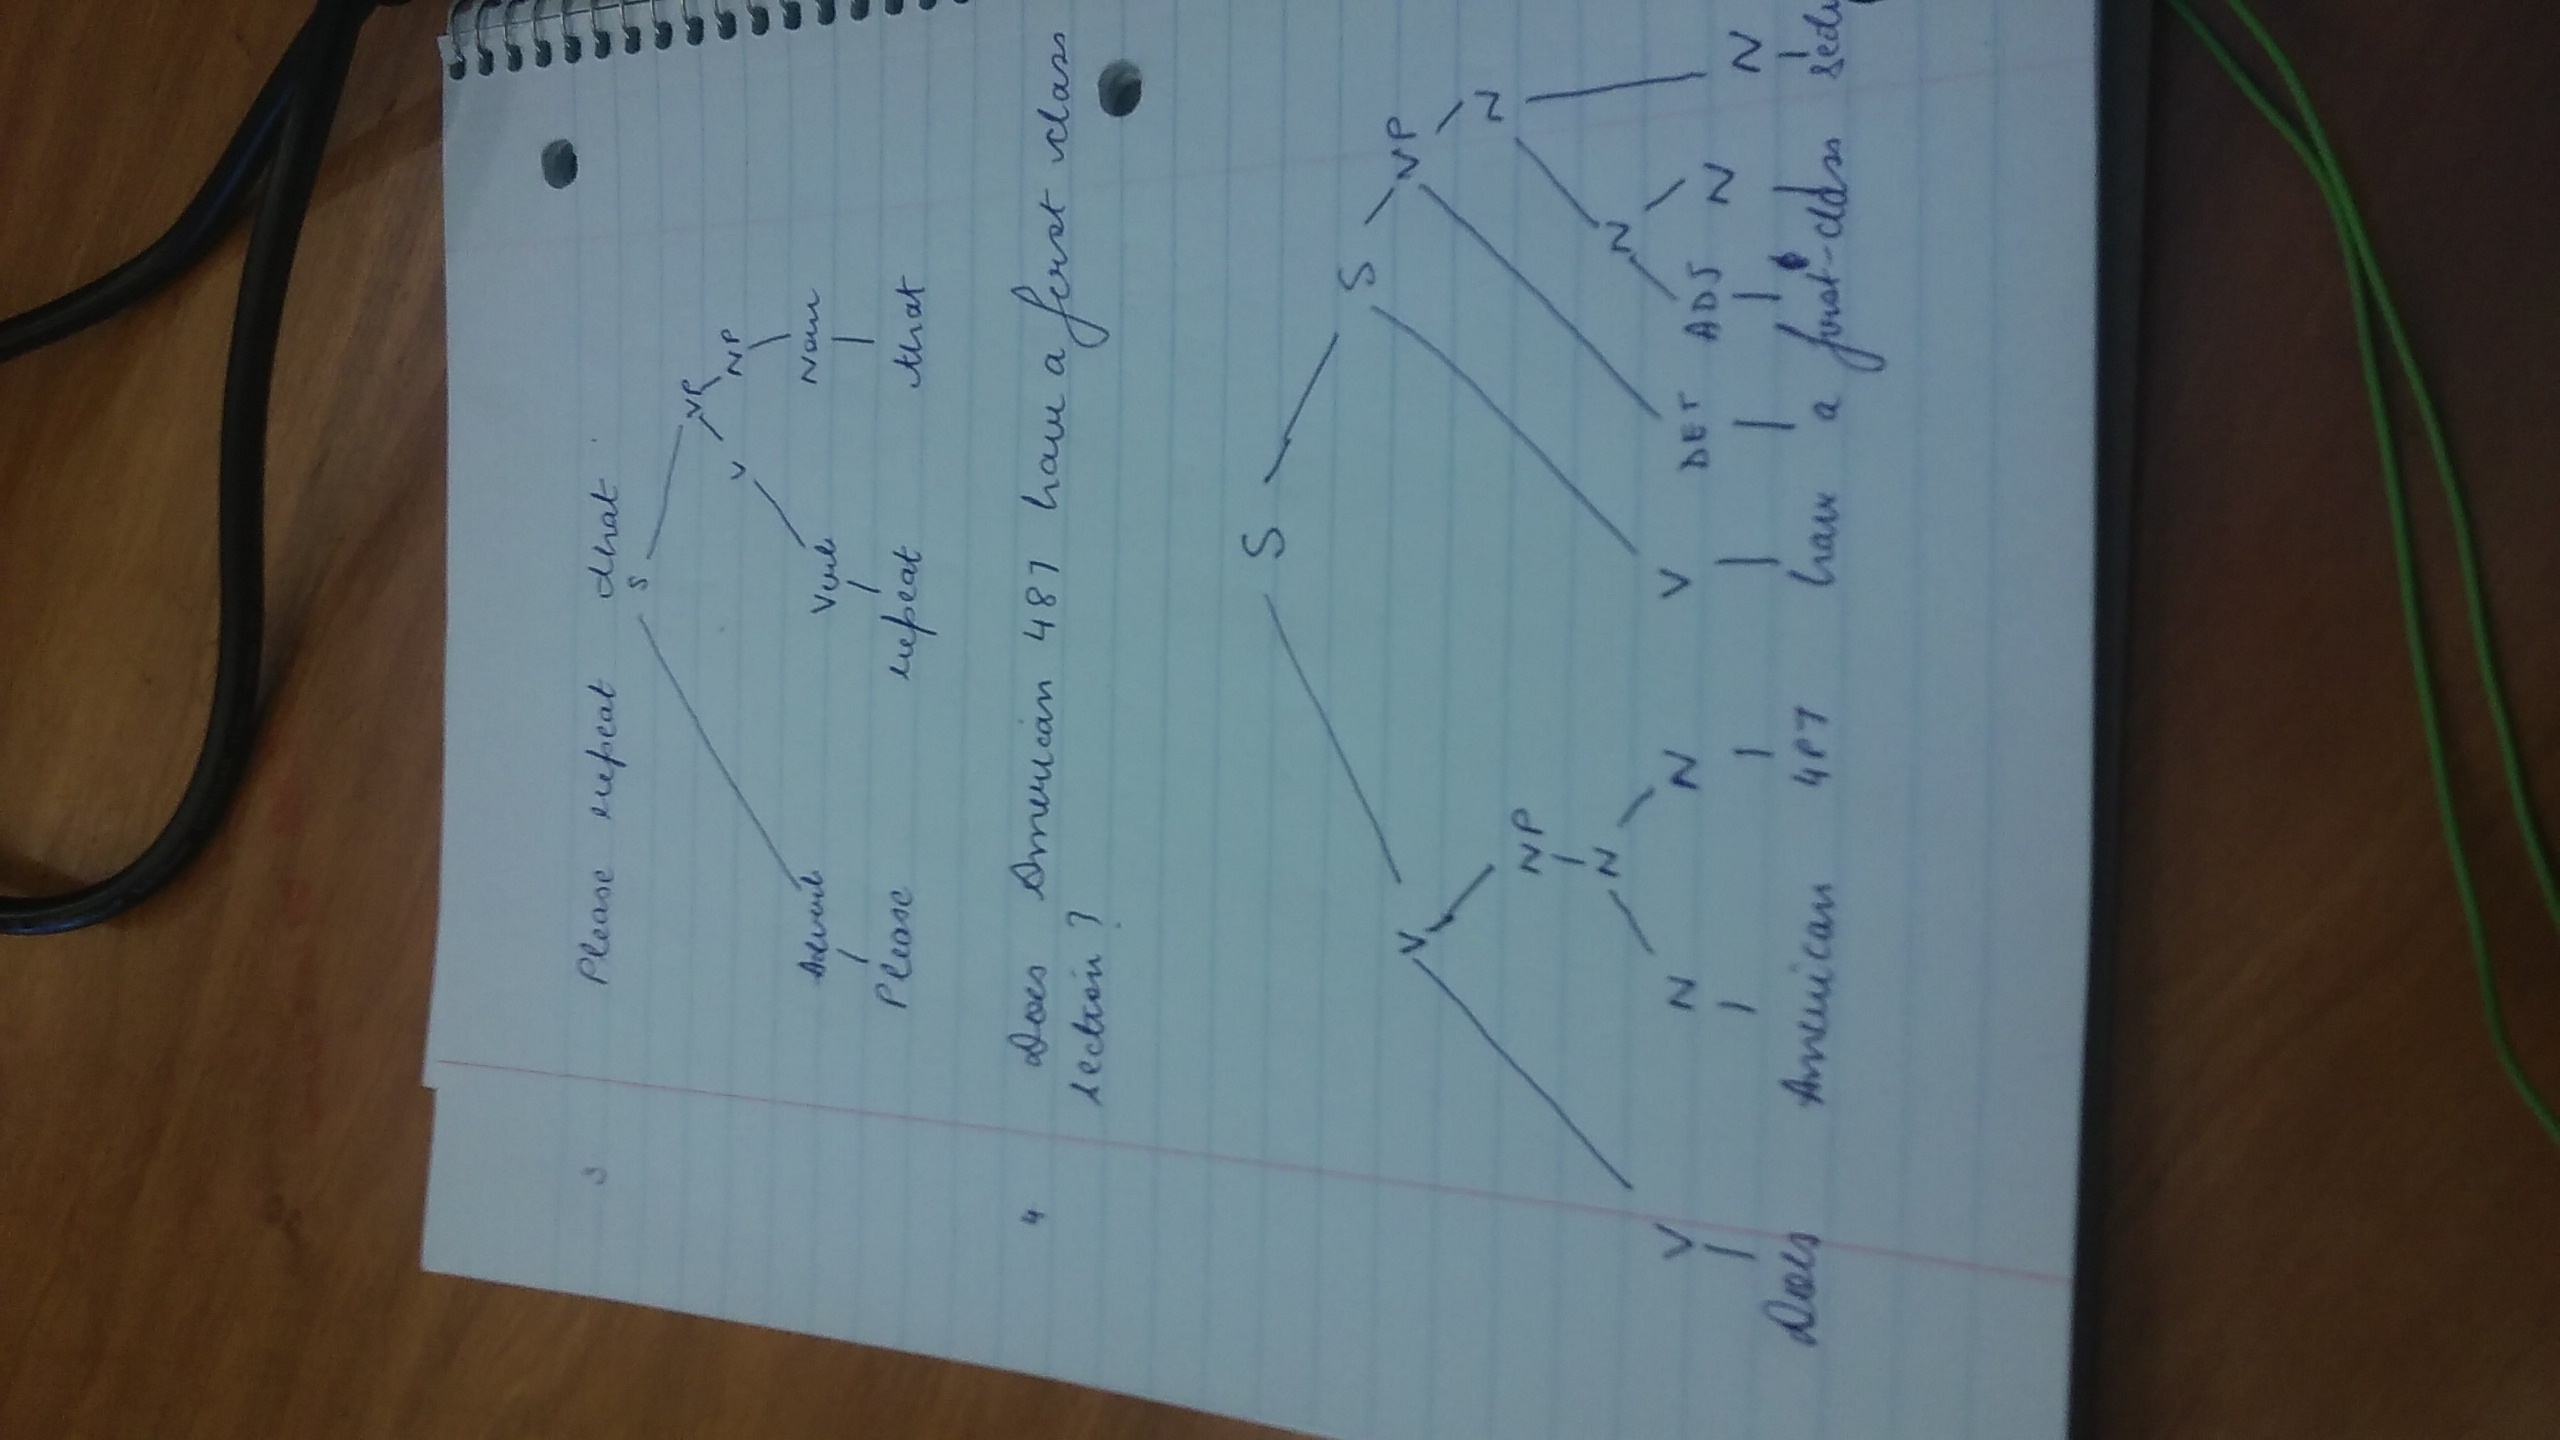 3 Please repeat that
S
VP
V NP
Adverb Verb Noun
Please repeat that
4 Does American 487 have a first class
section?
S
S
V VP
N
NP
N N
V N N V DET ADJ N N
Does American 487 have a first-class